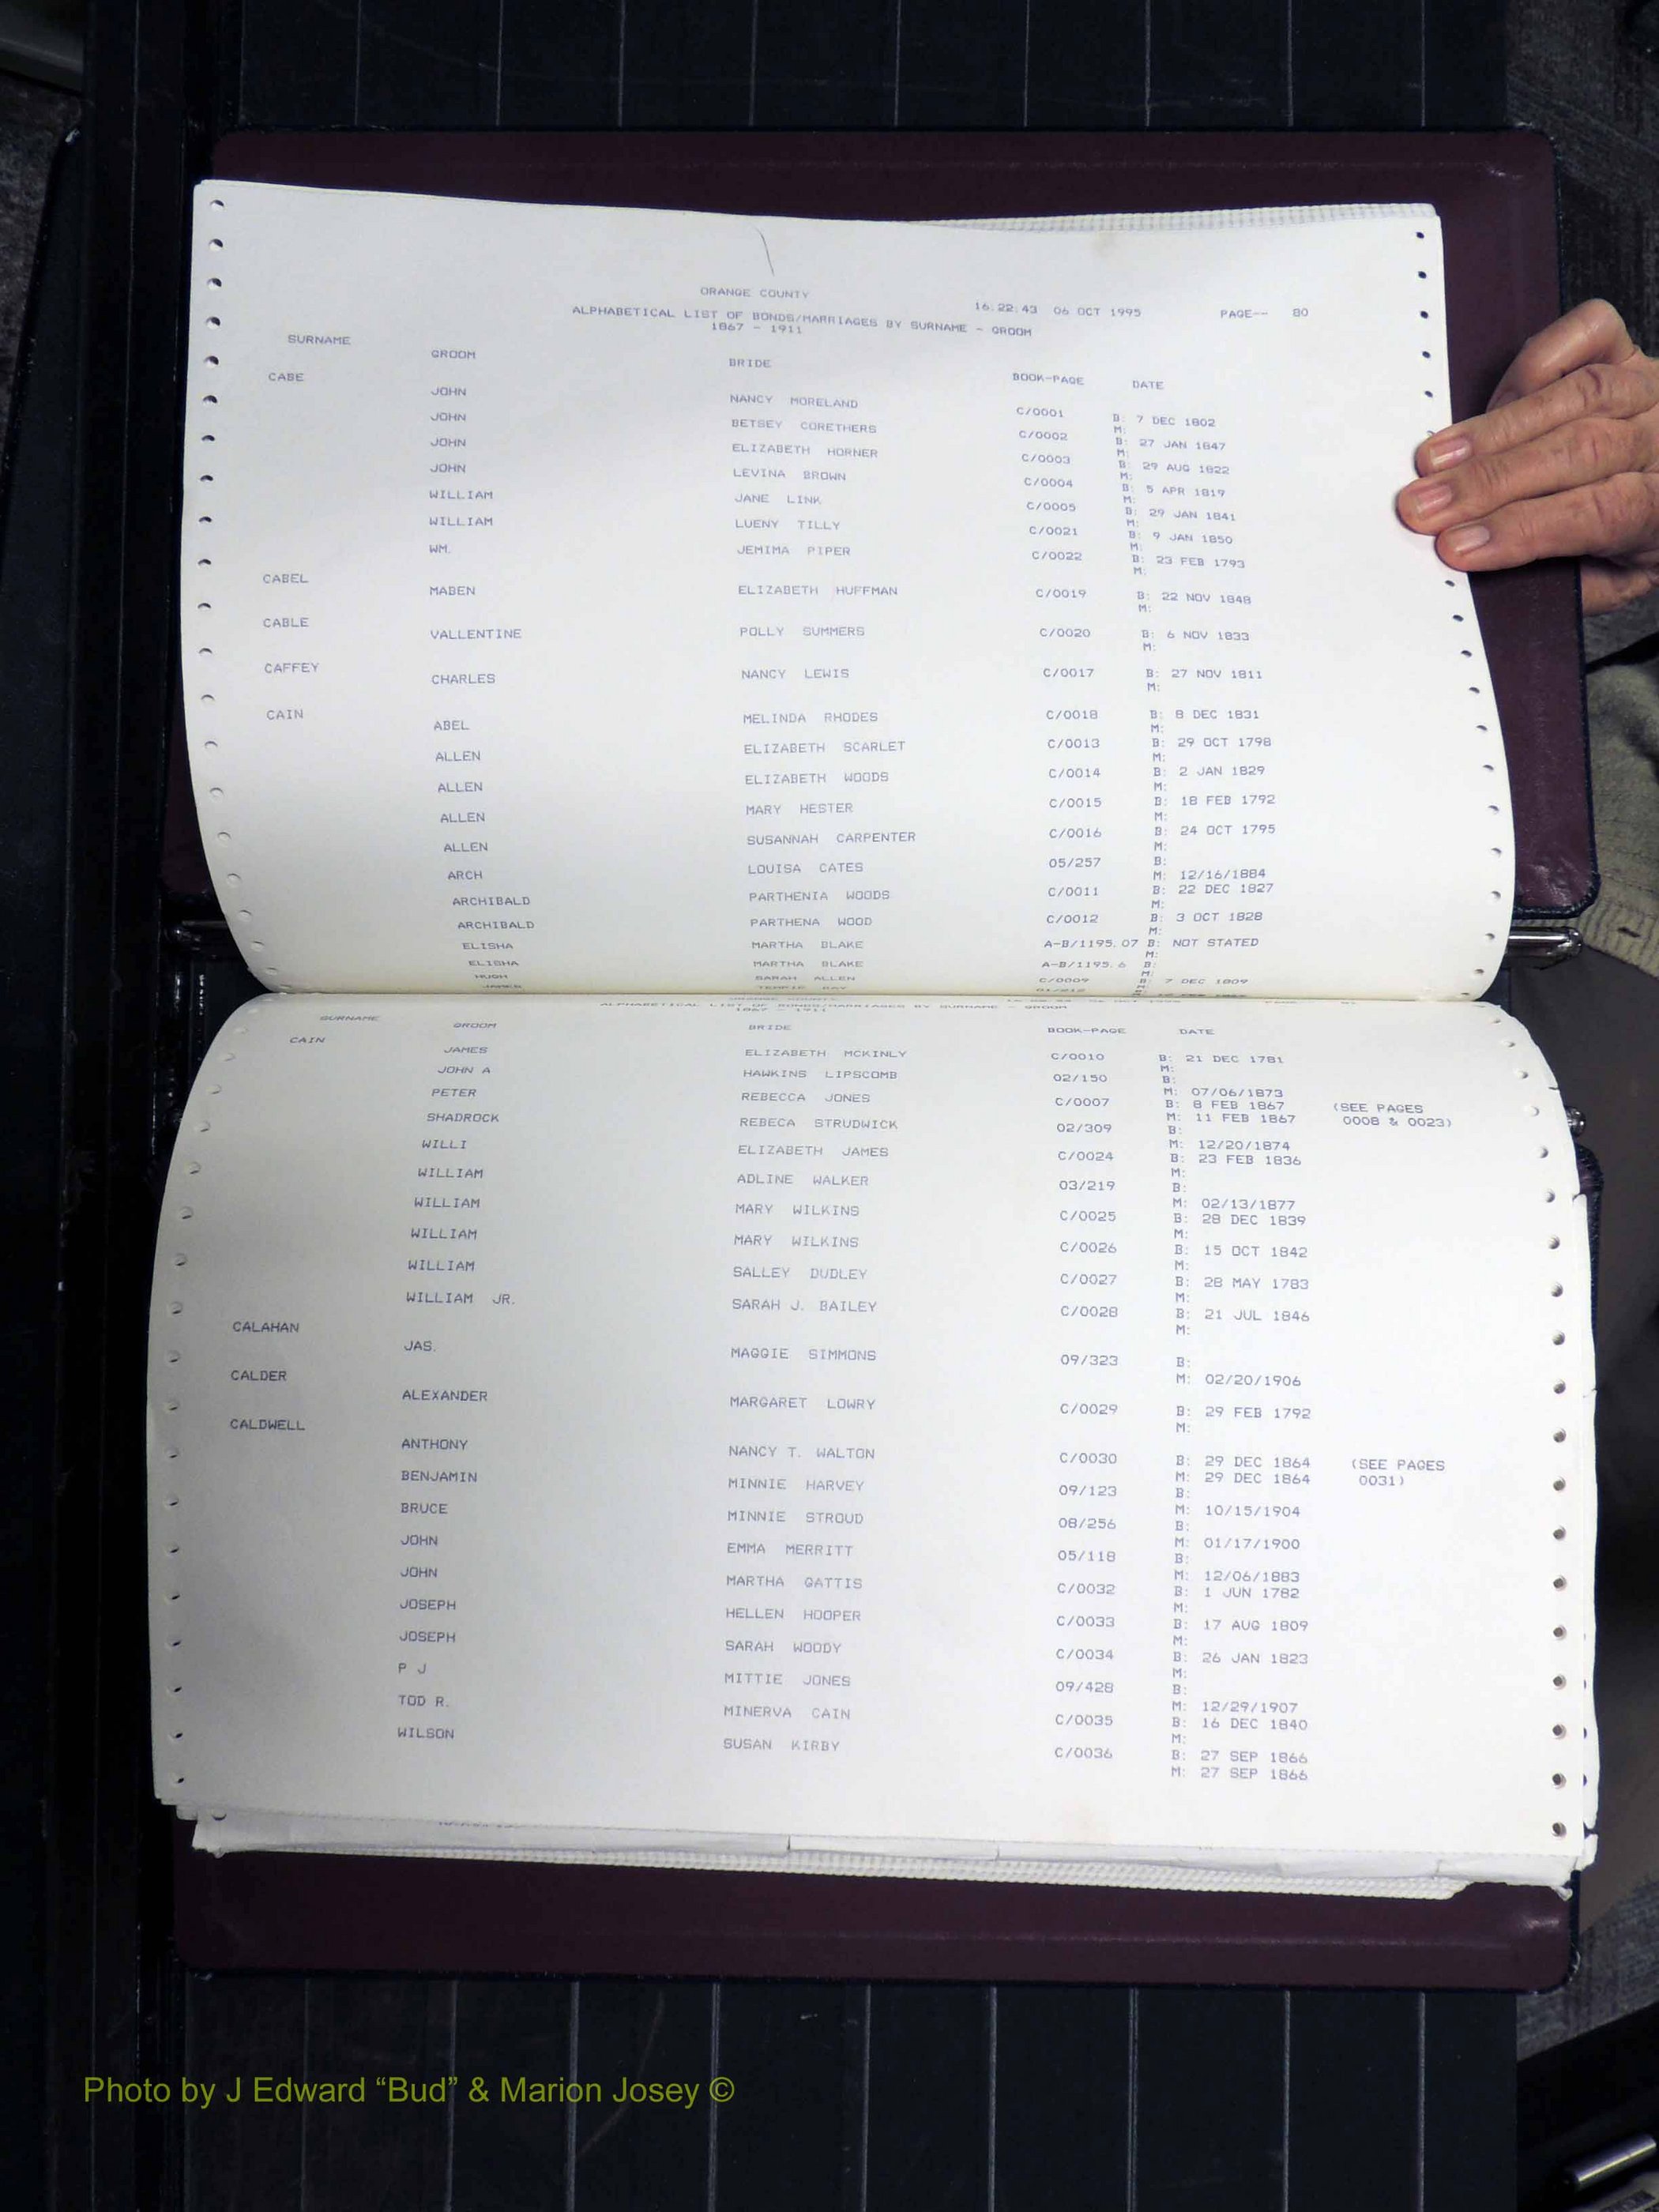 ORANGE COUNTY 16:22:43 06 OCT 1995 PAGE-- 80
ALPHABETICAL LIST OF BONDS/MARRIAGES BY SURNAME - GROOM
1867 - 1911
SURNAME GROOM BRIDE BOOK-PAGE DATE
CABE
JOHN NANCY MORELAND C/0001 B: 7 DEC 1802
M:
JOHN BETSEY CORETHERS C/0002 B: 27 JAN 1847
M:
JOHN ELIZABETH HORNER C/0003 B: 29 AUG 1822
M:
JOHN LEVINA BROWN C/0004 B: 5 APR 1819
M:
WILLIAM JANE LINK C/0005 B: 29 JAN 1841
M:
WILLIAM LUENY TILLY C/0021 B: 9 JAN 1850
M:
WM. JEMIMA PIPER C/0022 B: 23 FEB 1793
M:
CABEL
MABEN ELIZABETH HUFFMAN C/0019 B: 22 NOV 1848
M:
CABLE
VALLENTINE POLLY SUMMERS C/0020 B: 6 NOV 1833
M:
CAFFEY
CHARLES NANCY LEWIS C/0017 B: 27 NOV 1811
M:
CAIN
ABEL MELINDA RHODES C/0018 B: 8 DEC 1831
M:
ALLEN ELIZABETH SCARLET C/0013 B: 29 OCT 1798
M:
ALLEN ELIZABETH WOODS C/0014 B: 2 JAN 1829
M:
ALLEN MARY HESTER C/0015 B: 18 FEB 1792
M:
ALLEN SUSANNAH CARPENTER C/0016 B: 24 OCT 1795
M:
ARCH LOUISA CATES 05/257 B:
M: 12/16/1884
ARCHIBALD PARTHENIA WOODS C/0011 B: 22 DEC 1827
M:
ARCHIBALD PARTHENA WOOD C/0012 B: 3 OCT 1828
M:
ELISHA MARTHA BLAKE A-B/1195.07 B: NOT STATED
M:
ELISHA MARTHA BLAKE A-B/1195.6 B:
M:
HUGH SARAH ALLEN C/0009 B: 7 DEC 1809
M:
JAMES
ALPHABETICAL LIST OF BONDS/MARRIAGES BY SURNAME - GROOM
1867 - 1911
SURNAME GROOM BRIDE BOOK-PAGE DATE
CAIN
JAMES ELIZABETH MCKINLY C/0010 B: 21 DEC 1781
M:
JOHN A HAWKINS LIPSCOMB 02/150 B:
M: 07/06/1873
PETER REBECCA JONES C/0007 B: 8 FEB 1867 (SEE PAGES
M: 11 FEB 1867 0008 & 0023)
SHADROCK REBECA STRUDWICK 02/309 B:
M: 12/20/1874
WILLI ELIZABETH JAMES C/0024 B: 23 FEB 1836
M:
WILLIAM ADLINE WALKER 03/219 B:
M: 02/13/1877
WILLIAM MARY WILKINS C/0025 B: 28 DEC 1839
M:
WILLIAM MARY WILKINS C/0026 B: 15 OCT 1842
M:
WILLIAM SALLEY DUDLEY C/0027 B: 28 MAY 1783
M:
WILLIAM JR. SARAH J. BAILEY C/0028 B: 21 JUL 1846
M:
CALAHAN
JAS. MAGGIE SIMMONS 09/323 B:
M: 02/20/1906
CALDER
ALEXANDER MARGARET LOWRY C/0029 B: 29 FEB 1792
M:
CALDWELL
ANTHONY NANCY T. WALTON C/0030 B: 29 DEC 1864 (SEE PAGES
M: 29 DEC 1864 0031)
BENJAMIN MINNIE HARVEY 09/123 B:
M: 10/15/1904
BRUCE MINNIE STROUD 08/256 B:
M: 01/17/1900
JOHN EMMA MERRITT 05/118 B:
M: 12/06/1883
JOHN MARTHA GATTIS C/0032 B: 1 JUN 1782
M:
JOSEPH HELLEN HOOPER C/0033 B: 17 AUG 1809
M:
JOSEPH SARAH WOODY C/0034 B: 26 JAN 1823
M:
P J MITTIE JONES 09/428 B:
M: 12/29/1907
TOD R. MINERVA CAIN C/0035 B: 16 DEC 1840
M:
WILSON SUSAN KIRBY C/0036 B: 27 SEP 1866
M: 27 SEP 1866
Photo by J Edward “Bud” & Marion Josey ©